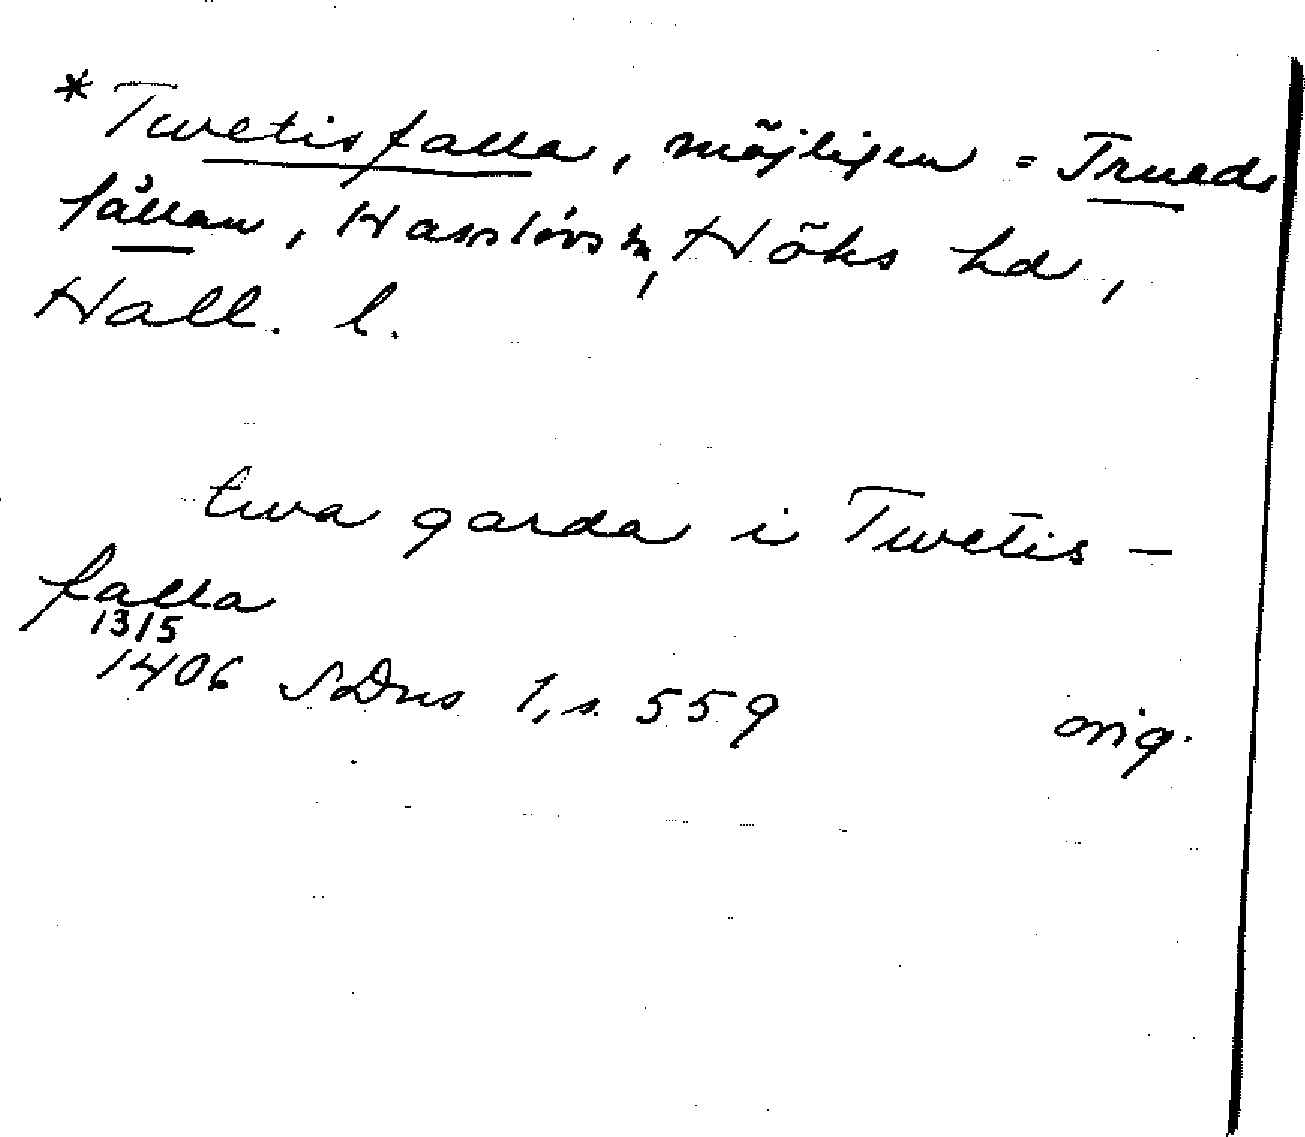 * Twetisfalla, möjligen = Trueds
fållan, Hasslövs sn, Höks hd,
Hall. l.
twa garda i Twetis-
falla
13/5
1406 SDns 1, s. 559 orig.